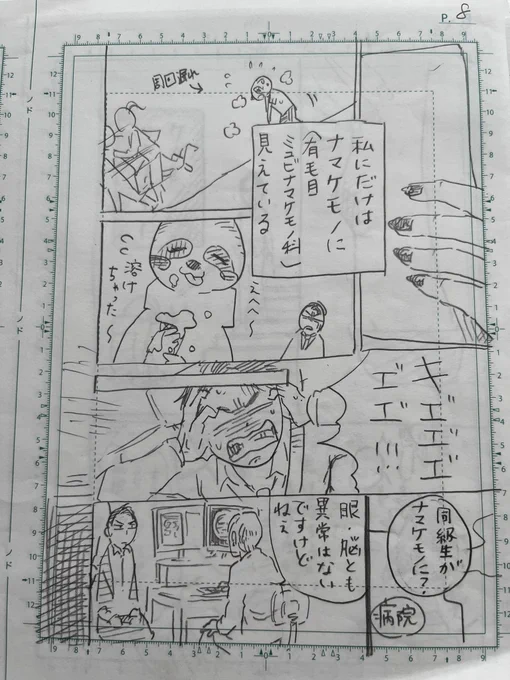 P. 8
周回遅れ
私にだけは
ナマケモノに
(有毛目
ミユビナマケモノ科)
見えている
えへへ〜
溶け
ちゃった〜
ギエエエ
エエ!!!
同級生が
ナマケモノに?
病院
眼・脳とも
異常はない
ですけど
ねぇ
ノド
ノド
ノド